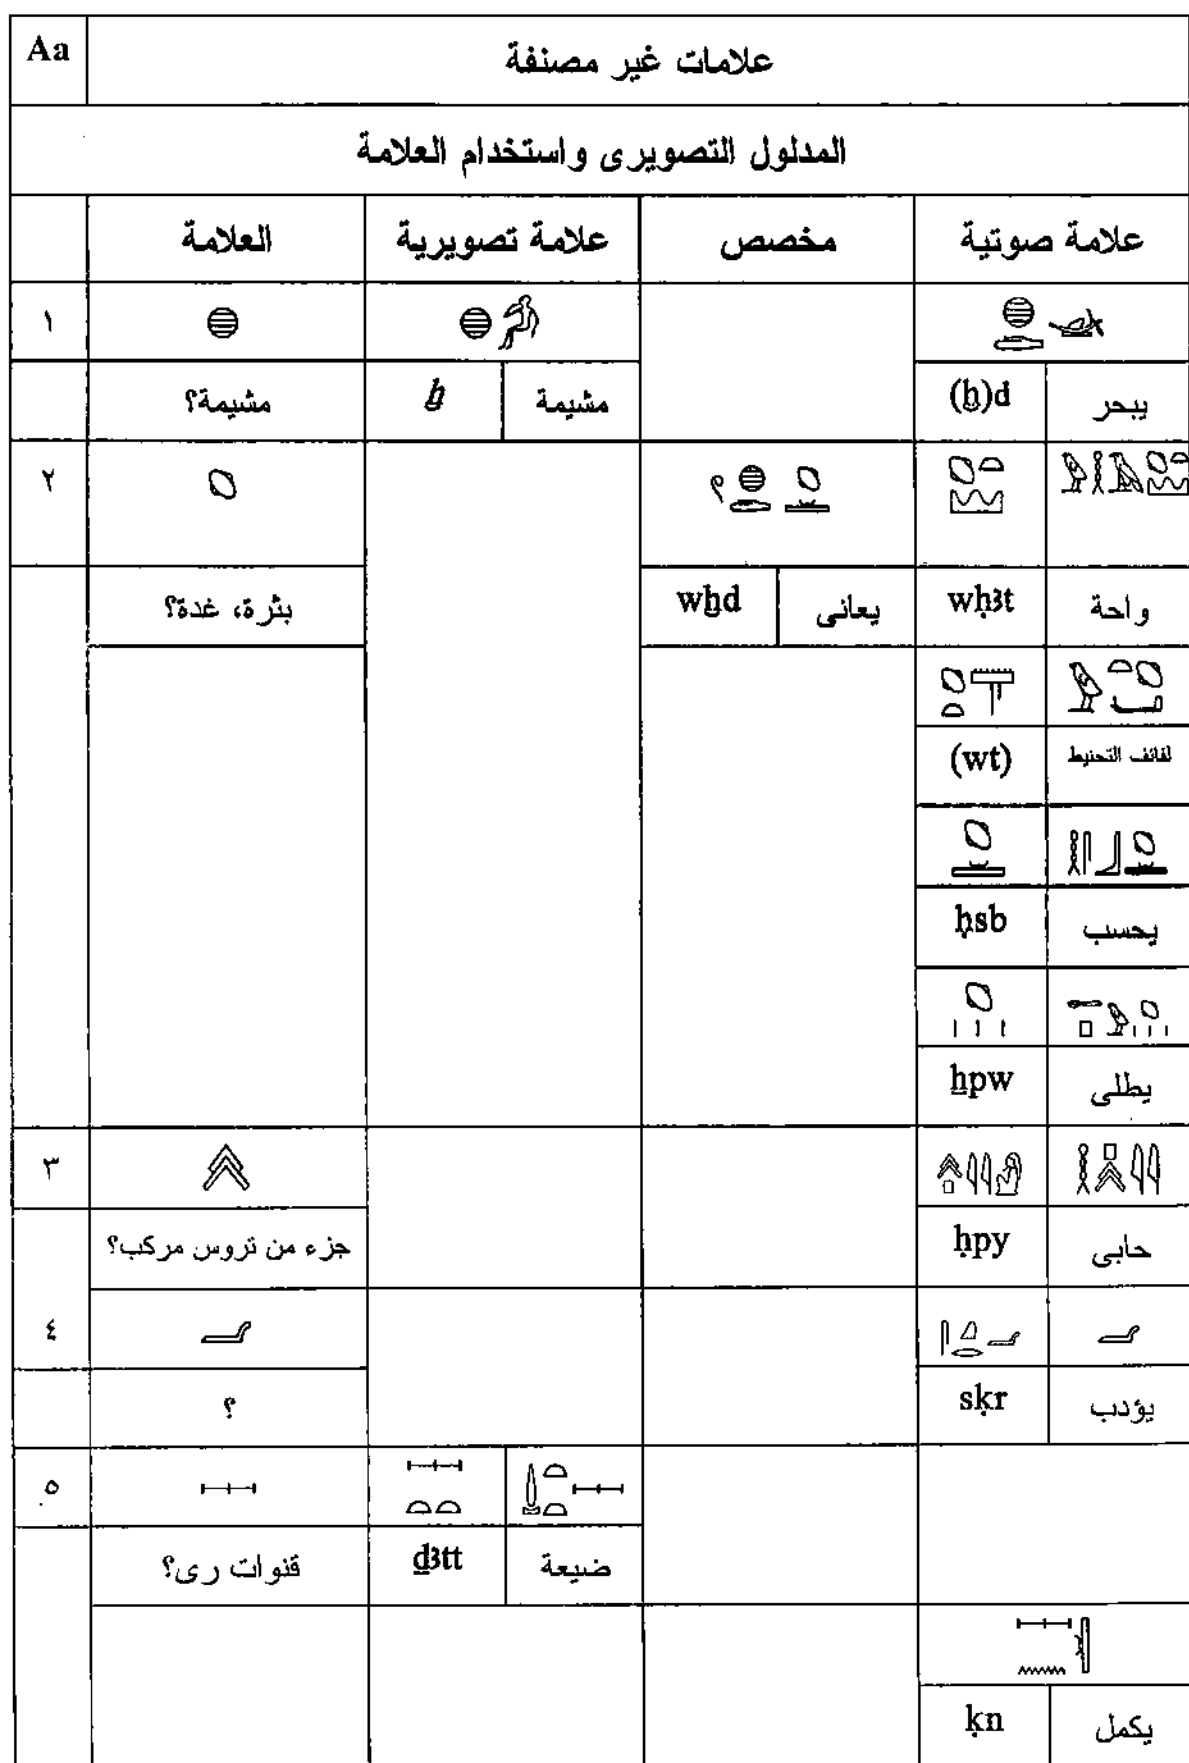 Aa علامات غير مصنفة
المدلول التصويرى واستخدام العلامة
العلامة علامة تصويرية مخصص علامة صوتية
١
مشيمة؟ ẖ مشيمة (ẖ)d يبحر
٢ ؟
بثرة، غدة؟ wẖd يعانى wḥꜣt واحة
(wt) لفائف التحنيط
ḥsb يحسب
ẖpw يطلى
٣
جزء من تروس مركب؟ ḥpy حابى
٤
؟ sḳr يؤدب
٥
قنوات رى؟ ḏꜣtt ضيعة
ḳn يكمل